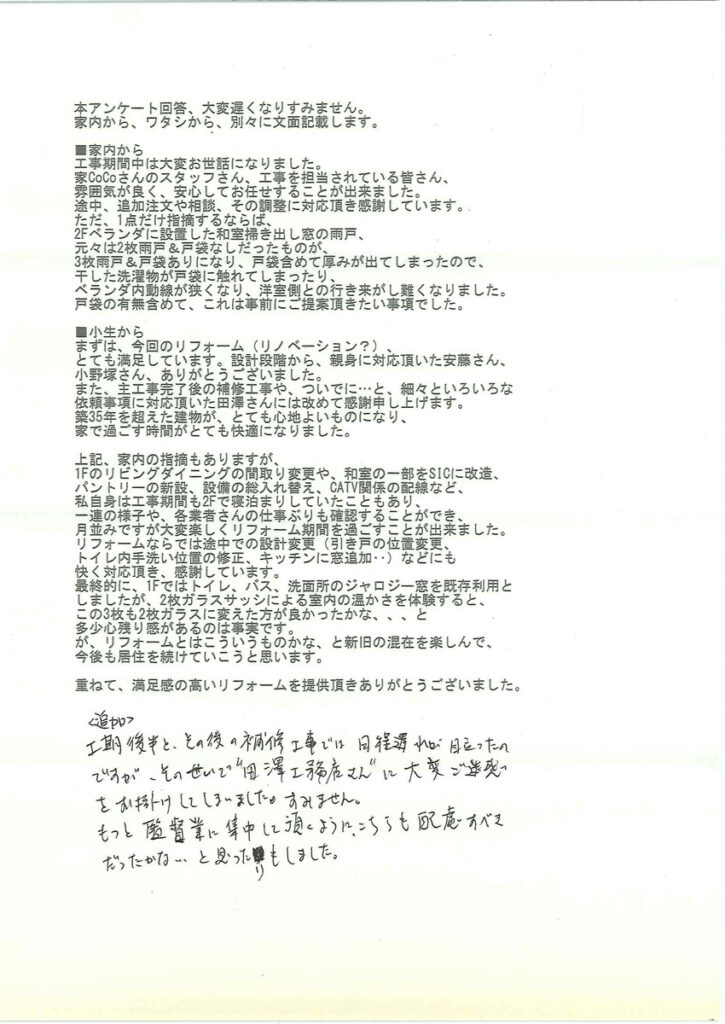 本アンケート回答、大変遅くなりすみません。
家内から、ワタシから、別々に文面記載します。
■家内から
工事期間中は大変お世話になりました。
家CoCoさんのスタッフさん、工事を担当されている皆さん、
雰囲気が良く、安心してお任せすることが出来ました。
途中、追加注文や相談、その調整に対応頂き感謝しています。
ただ、1点だけ指摘するならば、
2Fベランダに設置した和室掃き出し窓の雨戸、
元々は2枚雨戸＆戸袋なしだったものが、
3枚雨戸＆戸袋ありになり、戸袋含めて厚みが出てしまったので、
干した洗濯物が戸袋に触れてしまったり、
ベランダ内動線が狭くなり、洋室側との行き来がし難くなりました。
戸袋の有無含めて、これは事前にご提案頂きたい事項でした。
■小生から
まずは、今回のリフォーム（リノベーション？）、
とても満足しています。設計段階から、親身に対応頂いた安藤さん、
小野塚さん、ありがとうございました。
また、主工事完了後の補修工事や、ついでに…と、細々といろいろな
依頼事項に対応頂いた田澤さんには改めて感謝申し上げます。
築35年を超えた建物が、とても心地よいものになり、
家で過ごす時間がとても快適になりました。
上記、家内の指摘もありますが、
1Fのリビングダイニングの間取り変更や、和室の一部をSICに改造、
パントリーの新設、設備の総入れ替え、CATV関係の配線など、
私自身は工事期間も2Fで寝泊まりしていたこともあり、
一連の様子や、各業者さんの仕事ぶりも確認することができ、
月並みですが大変楽しくリフォーム期間を過ごすことが出来ました。
リフォームならでは途中での設計変更（引き戸の位置変更、
トイレ内手洗い位置の修正、キッチンに窓追加‥）などにも
快く対応頂き、感謝しています。
最終的に、1Fではトイレ、バス、洗面所のジャロジー窓を既存利用と
しましたが、2枚ガラスサッシによる室内の温かさを体験すると、
この3枚も2枚ガラスに変えた方が良かったかな、、、と
多少心残り感があるのは事実です。
が、リフォームとはこういうものかな、と新旧の混在を楽しんで、
今後も居住を続けていこうと思います。
重ねて、満足感の高いリフォームを提供頂きありがとうございました。
<追加>
工期後半と、その後の補修工事では日程遅れが目立ったの
ですが、そのせいで"田澤工務店さん"に大変ご迷惑
をお掛けしてしまいました。すみません。
もっと監督業に集中して頂くように、こちらも配慮すべき
だったかな…と思ったりもしました。